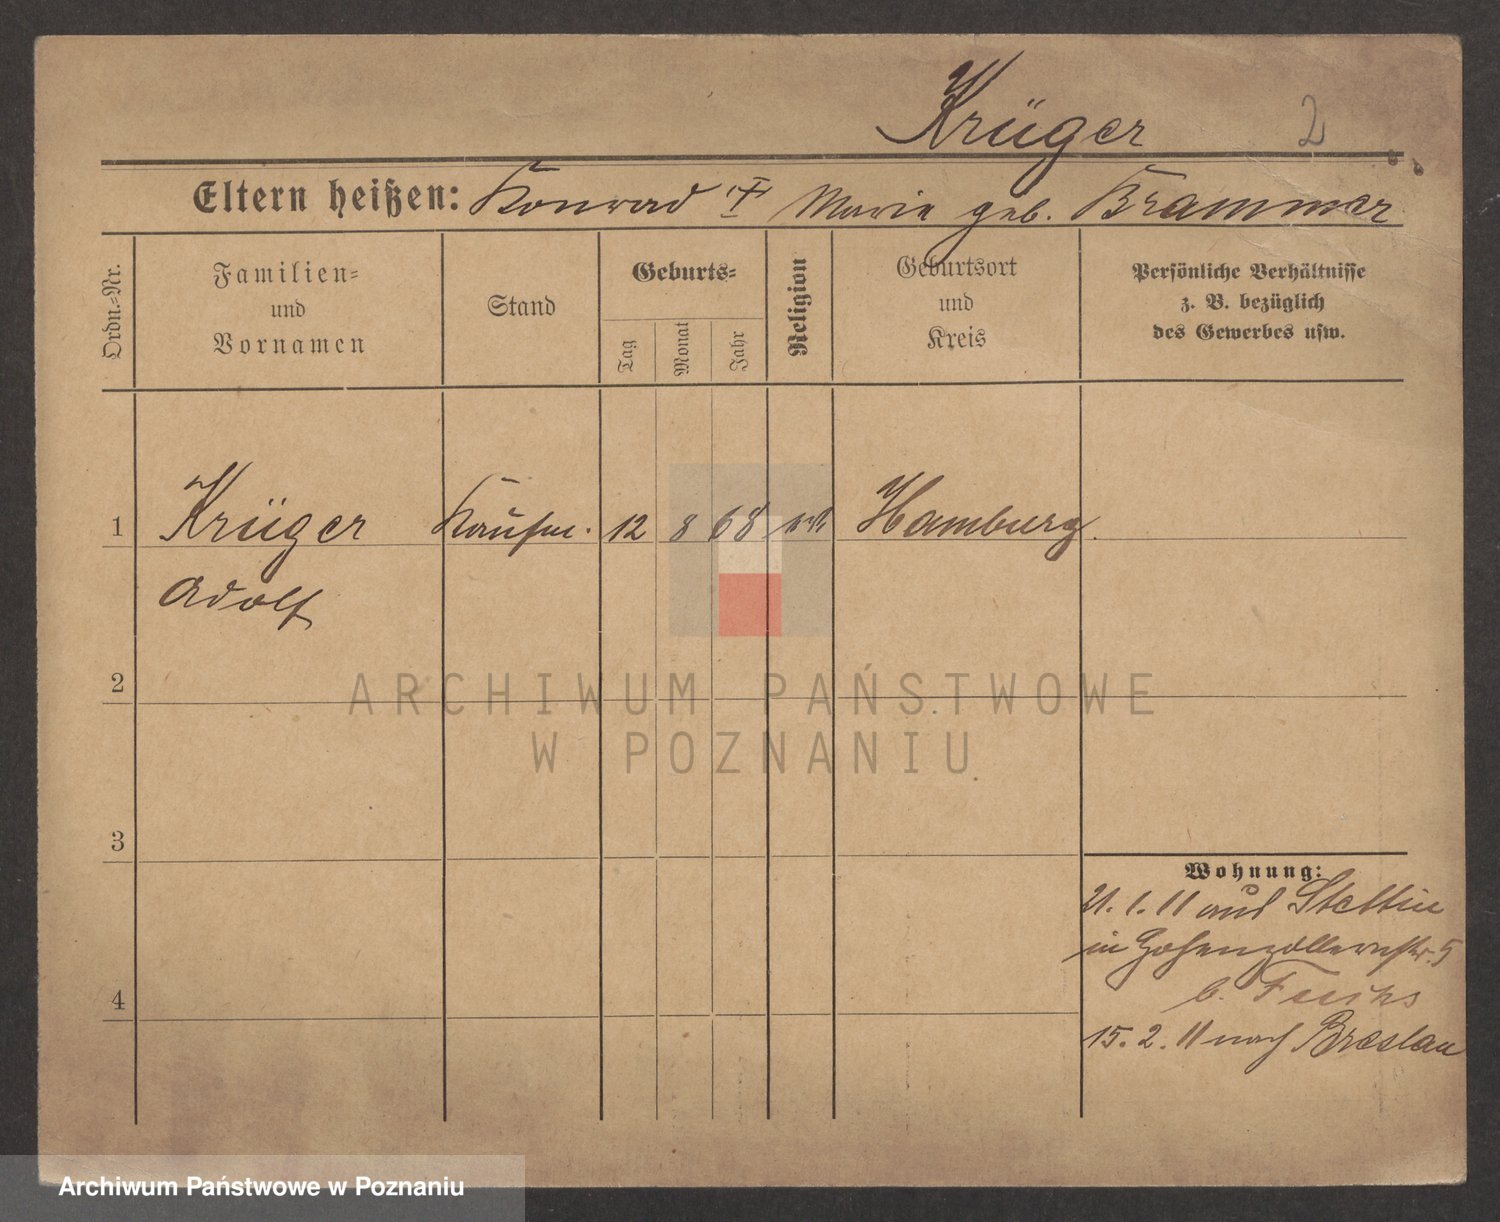 Krüger 2
Eltern heißen: Konrad Marie geb. Krammer
Ordn.-Nr.
Familien-
und
Vornamen
Stand
Geburts-
Tag
Monat
Jahr
Religion
Geburtsort
und
Kreis
Persönliche Verhältnisse
z. B. bezüglich
des Gewerbes usw.
1 Krüger Kaufm. 12 8 68 Hamburg.
Adolf
2
ARCHIWUM PAŃSTWOWE
W POZNANIU
3
Wohnung:
21. 1. 11 aus Stettin
in Hohenzollernstr. 5
b. Fuchs
4
15. 2. 11 nach Breslau
Archiwum Państwowe w Poznaniu